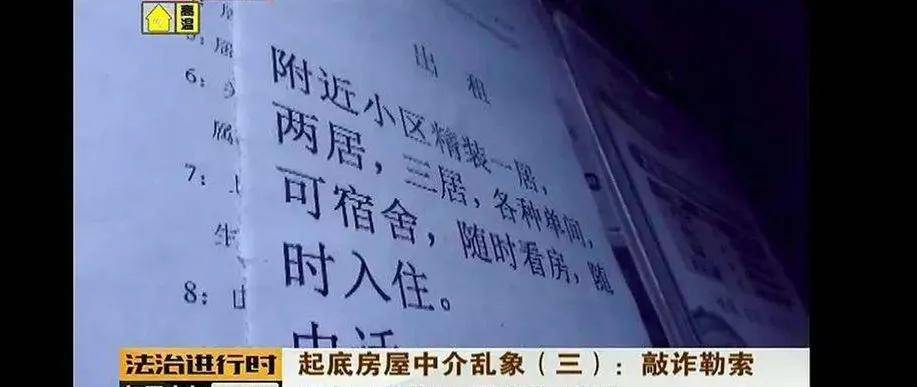 高温
出租
附近小区精装一居，
两居，三居，各种单间，
可宿舍，随时看房，随
时入住。
电话
6：
属
7：
生
8：
法治进行时
起底房屋中介乱象（三）：敲诈勒索